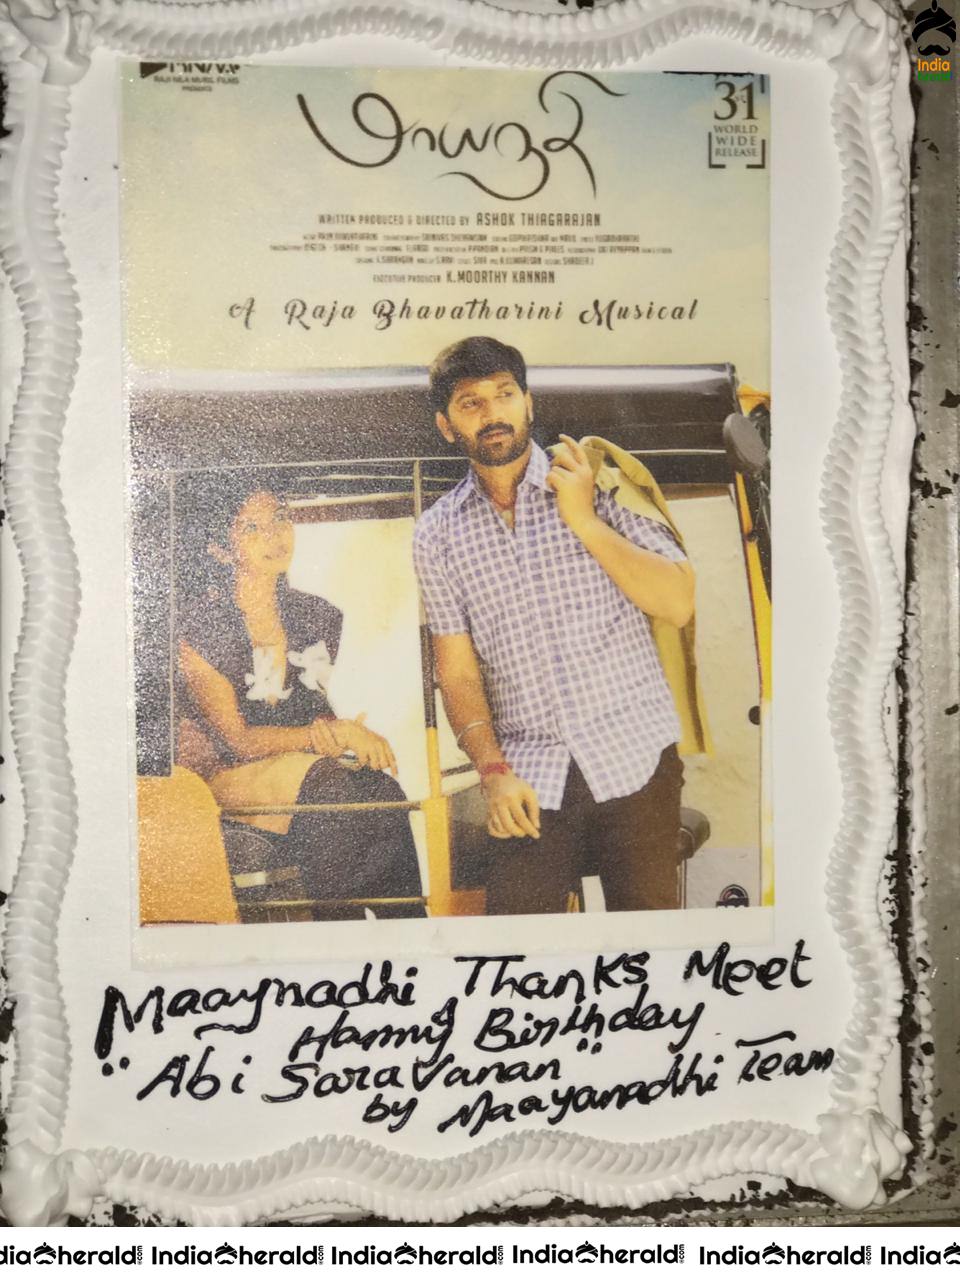 India
Herald
RAJI NILA MUKIL FILMS
PRESENTS
மாயநதி
31st
WORLD
WIDE
RELEASE
WRITTEN PRODUCED & DIRECTED BY ASHOK THIAGARAJAN
EXECUTIVE PRODUCER K.MOORTHY KANNAN
A Raja Bhavatharini Musical
Maaynadhi Thanks Meet
Happy Birthday
"Abi Saravanan"
by Maayanadhi Team
diaherald.com Indiaherald.com Indiaherald.com Indiaherald.com Indiaherald.com India